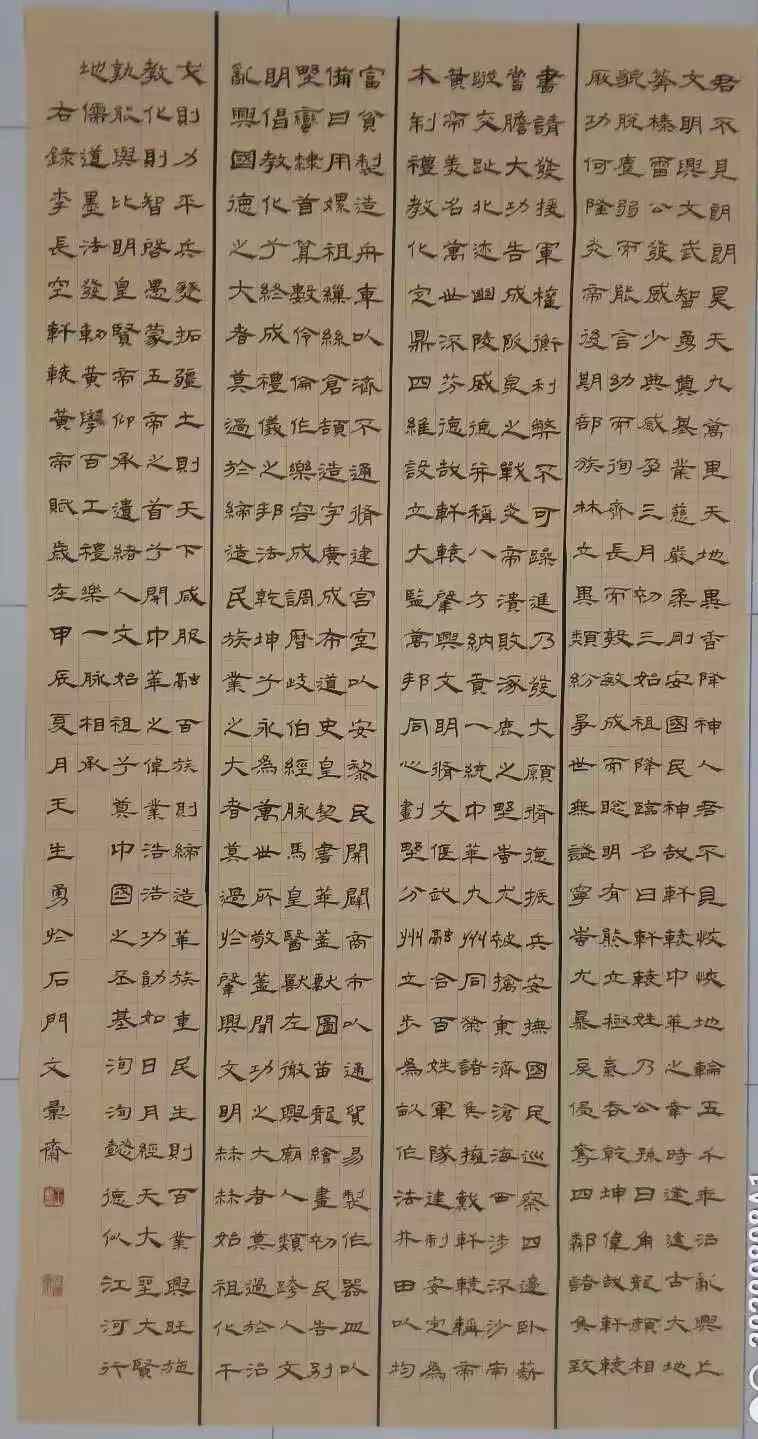 君不見朗朗昊天九萬里天地異香降神人君不見悠悠地輪五千年治亂興亡
文明興文武智勇奠基業慈嚴柔剛安國民神哉軒轅中華之幸時逢遠古大地
莽榛雷公發威少典感孕三月初三始祖降臨名曰軒轅姓乃公孫日角龍顏相
貌脫塵弱而能言幼而徇齊長而敦敏成而聰明有熊立極氣吞乾坤偉哉軒轅
厥功何隆炎帝後期部族林立異類紛爭世無謐寧蚩尤暴戾侵奪四鄰諸侯致
書請發援軍權衡利弊不可躁進乃發大願將德振兵安撫國民巡察四邊臥薪
嘗膽大功告成阪泉之戰炎帝潰敗涿鹿之野蚩尤被擒東濟滄海西涉深沙南
交趾北幽陵威德并稱八方納貢一統中華九州同榮諸侯擁戴軒轅稱帝
黃帝美名萬世深芬德哉軒轅肇興文明將文偃武融合百姓軍隊建制安定為
本制禮教化定鼎四維設立大監萬邦同心劃野分州立步為畝作法井田以均
富貧製造舟車以濟不通將建宮室以安黎民開闢商市以通貿易製作器皿以
備日用嫘祖繅絲倉頡造字廣成布道史皇契書華蓋獸圖苗龍繪畫初民告別
野蠻隸首算數伶倫作樂容成調曆歧伯經脈馬皇醫獸左徹興廟人類跨人文
明倡教化兮終成禮儀之邦法乾坤兮永為萬世所敬蓋聞功之大者莫過於治
亂興國德之大者莫過於締造民族業之大者莫過於肇興文明赫赫始祖化干
戈則力平兵燹拓疆土則天下咸服融百族則締造華族重民生則百業興旺施
教化則智啓愚蒙五帝之首兮開中華之偉業浩浩功勛如日月經天大聖大賢
孰能與比明皇賢帝仰承遺緒人文始祖兮奠中國之丕基洵洵懿德似江河行
地儒道墨法發軔黃學百工禮樂一脈相承
右錄李長空軒轅黃帝賦歲在甲辰夏月王生勇於石門文彙齋